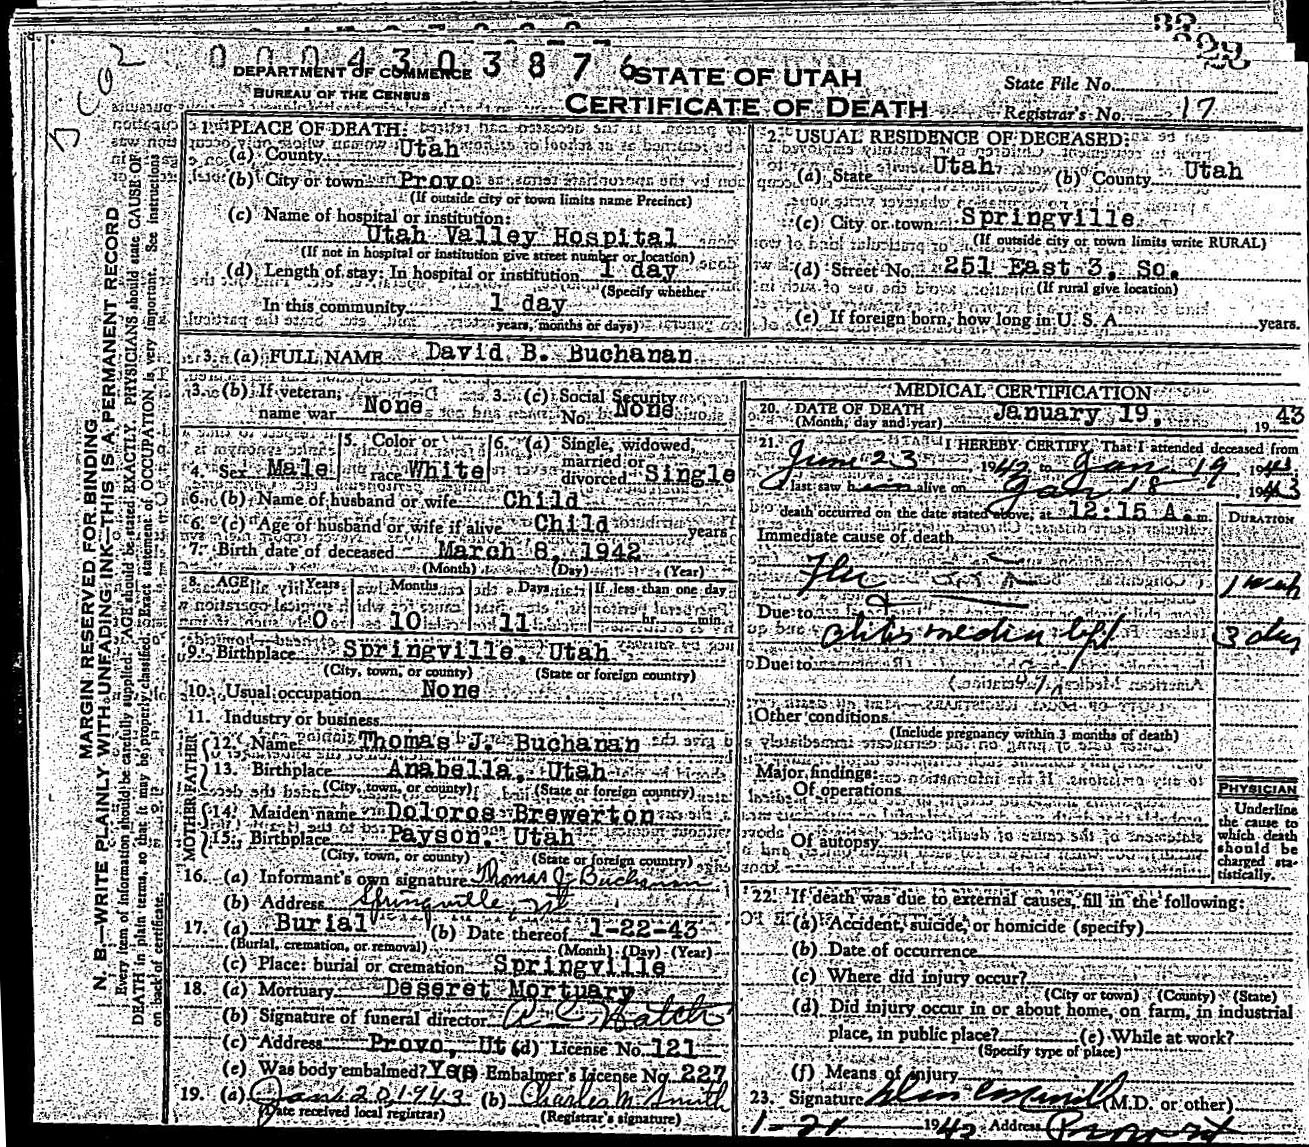 0 0 0 4 3 0 3 8 7 6
DEPARTMENT OF COMMERCE
BUREAU OF THE CENSUS
STATE OF UTAH
CERTIFICATE OF DEATH
State File No.
Registrar's No. 17
MARGIN RESERVED FOR BINDING
N. B.—WRITE PLAINLY WITH UNFADING INK—THIS IS A PERMANENT RECORD
Every item of information should be carefully supplied. AGE should be stated EXACTLY. PHYSICIANS should state CAUSE OF
DEATH in plain terms, so that it may be properly classified. Exact statement of OCCUPATION is very important. See instructions
on back of certificate.
1. PLACE OF DEATH:
(a) County Utah
(b) City or town Provo
(If outside city or town limits name Precinct)
(c) Name of hospital or institution:
Utah Valley Hospital
(If not in hospital or institution give street number or location)
(d) Length of stay: In hospital or institution 1 day
(Specify whether
In this community 1 day
years, months or days)
2. USUAL RESIDENCE OF DECEASED:
(a) State Utah (b) County Utah
(c) City or town Springville
(If outside city or town limits write RURAL)
(d) Street No. 251 East 3. So.
(If rural give location)
(e) If foreign born, how long in U. S. A. years.
3. (a) FULL NAME David B. Buchanan
3. (b) If veteran, name war None
3. (c) Social Security No. None
4. Sex Male
5. Color or race White
6. (a) Single, widowed, married or divorced Single
6. (b) Name of husband or wife Child
6. (c) Age of husband or wife if alive Child years
7. Birth date of deceased March 8, 1942
(Month) (Day) (Year)
8. AGE Years Months Days If less than one day
0 10 11 hr. min.
9. Birthplace Springville, Utah
(City, town, or county) (State or foreign country)
10. Usual occupation None
11. Industry or business
FATHER
12. Name Thomas J. Buchanan
13. Birthplace Anabella, Utah
(City, town, or county) (State or foreign country)
MOTHER
14. Maiden name Doloros Brewerton
15. Birthplace Payson, Utah
(City, town, or county) (State or foreign country)
16. (a) Informant's own signature Thomas J. Buchanan
(b) Address Springville, Ut
17. (a) Burial (b) Date thereof 1-22-43
(Burial, cremation, or removal) (Month) (Day) (Year)
(c) Place: burial or cremation Springville
18. (a) Mortuary Deseret Mortuary
(b) Signature of funeral director Hatch
(c) Address Provo, Ut (d) License No. 121
(e) Was body embalmed? Yes Embalmer's License No. 227
19. (a) Jan 20 1943 (b) Charles M. Smith
(Date received local registrar) (Registrar's signature)
MEDICAL CERTIFICATION
20. DATE OF DEATH January 19, 1943
(Month, day and year)
21. I HEREBY CERTIFY, That I attended deceased from
June 23 1942 to Jan 19 1943
I last saw him alive on Jan 18 1943
death occurred on the date stated above, at 12:15 A. m.
DURATION
Immediate cause of death
Flu 1 week
Due to otitis media left 3 days
Due to
Other conditions
(Include pregnancy within 3 months of death)
Major findings:
Of operations
Of autopsy
PHYSICIAN
Underline
the cause to
which death
should be
charged sta-
tistically.
22. If death was due to external causes, fill in the following:
(a) Accident, suicide, or homicide (specify)
(b) Date of occurrence
(c) Where did injury occur?
(City or town) (County) (State)
(d) Did injury occur in or about home, on farm, in industrial
place, in public place? (e) While at work?
(Specify type of place)
(f) Means of injury
23. Signature (M.D. or other)
1-21 1943 Address Provo Ut